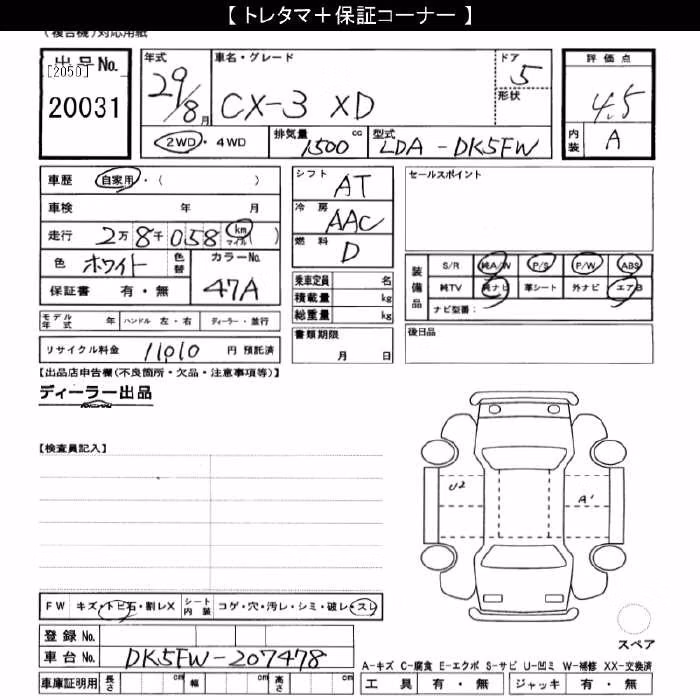 【 トレタマ＋保証コーナー 】
(複合機)対応用紙
出品No.
[2050]
20031
年式 車名・グレード ドア
29/8月 CX-3 XD 5
形状
2WD・4WD 排気量 1500 cc 型式 LDA-DK5FW
評価点
4.5
内装 A
車歴 自家用・( )
車検 年 月
走行 2万8千058 km マイル( )
色 ホワイト 色替 カラーNo. 47A
保証書 有・無
モデル年式 年 ハンドル 左・右 ディーラー・並行
リサイクル料金 11,010 円 預託済
シフト AT
冷房 AAC
燃料 D
乗車定員 名
積載量 kg
総重量 kg
書類期限
月 日
セールスポイント
装備品
S/R 純A/W P/S P/W ABS
純TV 純ナビ 革シート 外ナビ エアB
ナビ型番:
後日品
【出品店申告欄(不良箇所・欠品・注意事項等)】
ディーラー出品
【検査員記入】
U2
A1
FW キズ・トビ石・割レX シート内装 コゲ・穴・汚レ・シミ・破レ・スレ
登録No.
車台No. DK5FW-207478
車庫証明用 長さ cm 幅 cm 高さ cm
スペア
A-キズ C-腐食 E-エクボ S-サビ U-凹ミ W-補修 XX-交換済
工具 有・無 ジャッキ 有・無